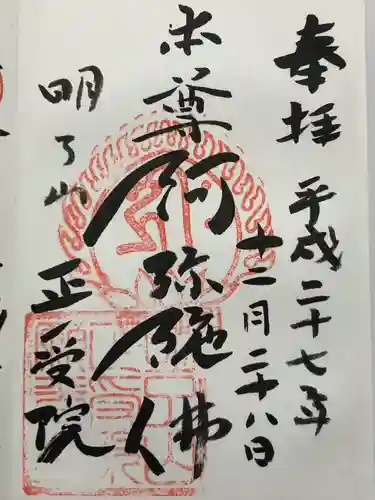 奉拝
平成二十七年
十二月二十八日
本尊阿弥陀仏
明了山
正受院